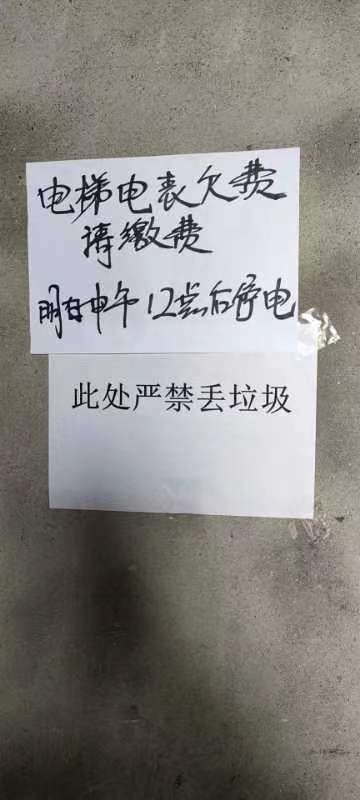 电梯电表欠费
请缴费
明日中午12点后停电
此处严禁丢垃圾